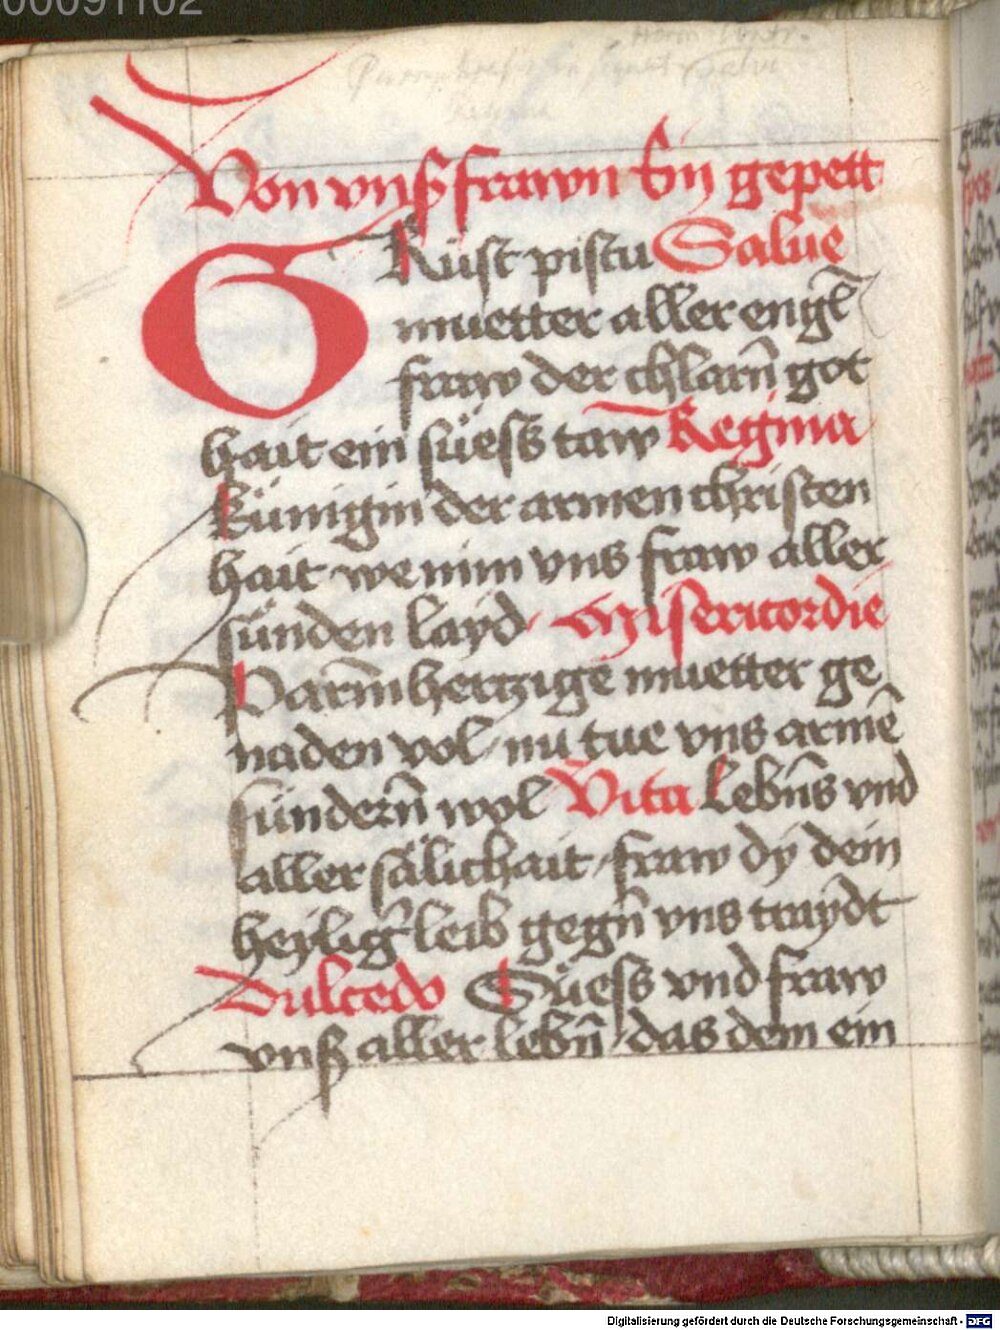 00091102
Von vnsß frawn ein gepett
GRüst pistu Salue
muetter aller engl̄
fraw der chlarn̄ got
hait ein süess taw Regina
Künigin der armen christen
hait we nim vns fraw aller
sünden layd Misericordie
Parm̄hertzige muetter ge
naden vol nu tue vns armē
sündern̄ wol Vita Lebn̄s vnd
aller sälichait fraw dy dein
heyliḡ leib gegn̄ vns traydt
Dulcedo Süess vnd fraw
vnß aller lebn̄ das dem ein
Digitalisierung gefördert durch die Deutsche Forschungsgemeinschaft - DFG